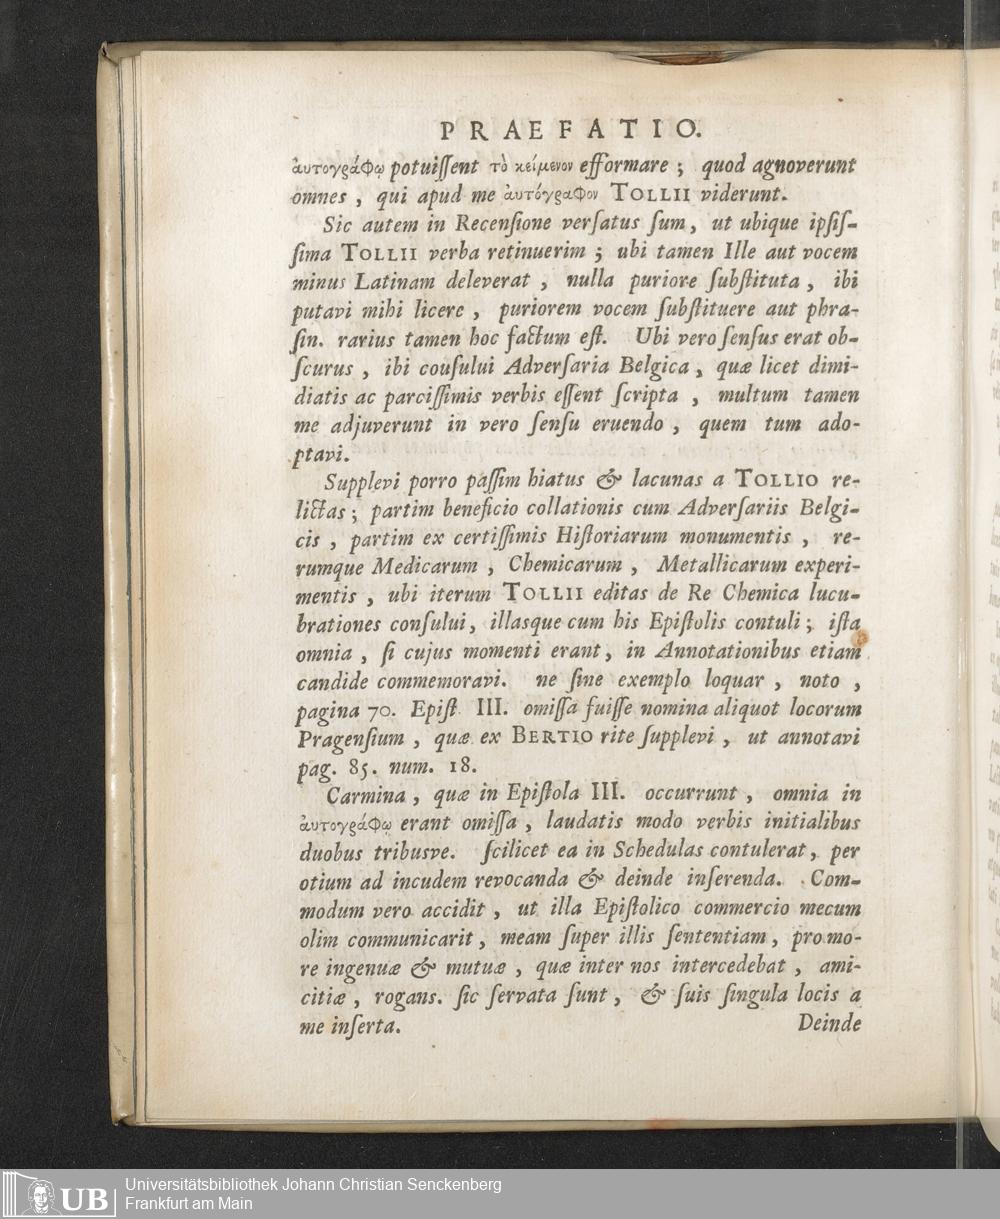 PRAEFATIO.
ἀυτογράφῳ potuiſſent τὸ κείμενον efformare ; quod agnoverunt
omnes , qui apud me ἀυτόγραφον TOLLII viderunt.
Sic autem in Recenſione verſatus ſum, ut ubique ipſiſ-
ſima TOLLII verba retinuerim ; ubi tamen Ille aut vocem
minus Latinam deleverat , nulla puriore ſubſtituta , ibi
putavi mihi licere , puriorem vocem ſubſtituere aut phra-
ſin. rarius tamen hoc factum eſt. Ubi vero ſenſus erat ob-
ſcurus , ibi couſului Adverſaria Belgica , quæ licet dimi-
diatis ac parciſſimis verbis eſſent ſcripta , multum tamen
me adjuverunt in vero ſenſu eruendo , quem tum ado-
ptavi.
Supplevi porro paſſim hiatus & lacunas a TOLLIO re-
lictas ; partim beneficio collationis cum Adverſariis Belgi-
cis , partim ex certiſſimis Hiſtoriarum monumentis , re-
rumque Medicarum , Chemicarum , Metallicarum experi-
mentis , ubi iterum TOLLII editas de Re Chemica lucu-
brationes conſului, illasque cum his Epiſtolis contuli ; iſta
omnia , ſi cujus momenti erant, in Annotationibus etiam
candide commemoravi. ne ſine exemplo loquar , noto ,
pagina 70. Epiſt. III. omiſſa fuiſſe nomina aliquot locorum
Pragenſium , quæ ex BERTIO rite ſupplevi , ut annotavi
pag. 85. num. 18.
Carmina , quæ in Epiſtola III. occurrunt , omnia in
ἀυτογράφῳ erant omiſſa , laudatis modo verbis initialibus
duobus tribusve. ſcilicet ea in Schedulas contulerat, per
otium ad incudem revocanda & deinde inſerenda. Com-
modum vero accidit , ut illa Epiſtolico commercio mecum
olim communicarit , meam ſuper illis ſententiam, pro mo-
re ingenuæ & mutuæ , quæ inter nos intercedebat , ami-
citiæ , rogans. ſic ſervata ſunt , & ſuis ſingula locis a
me inſerta.
Deinde
UB
Universitätsbibliothek Johann Christian Senckenberg
Frankfurt am Main